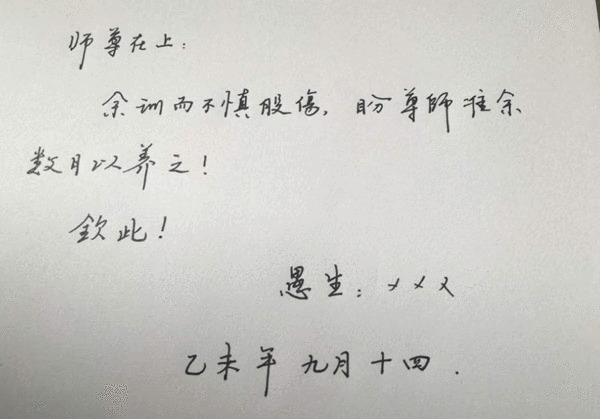 师尊在上：
余训而不慎股伤，盼尊師准余
数月以养之！
欽此！
愚生：×××
乙未年九月十四．